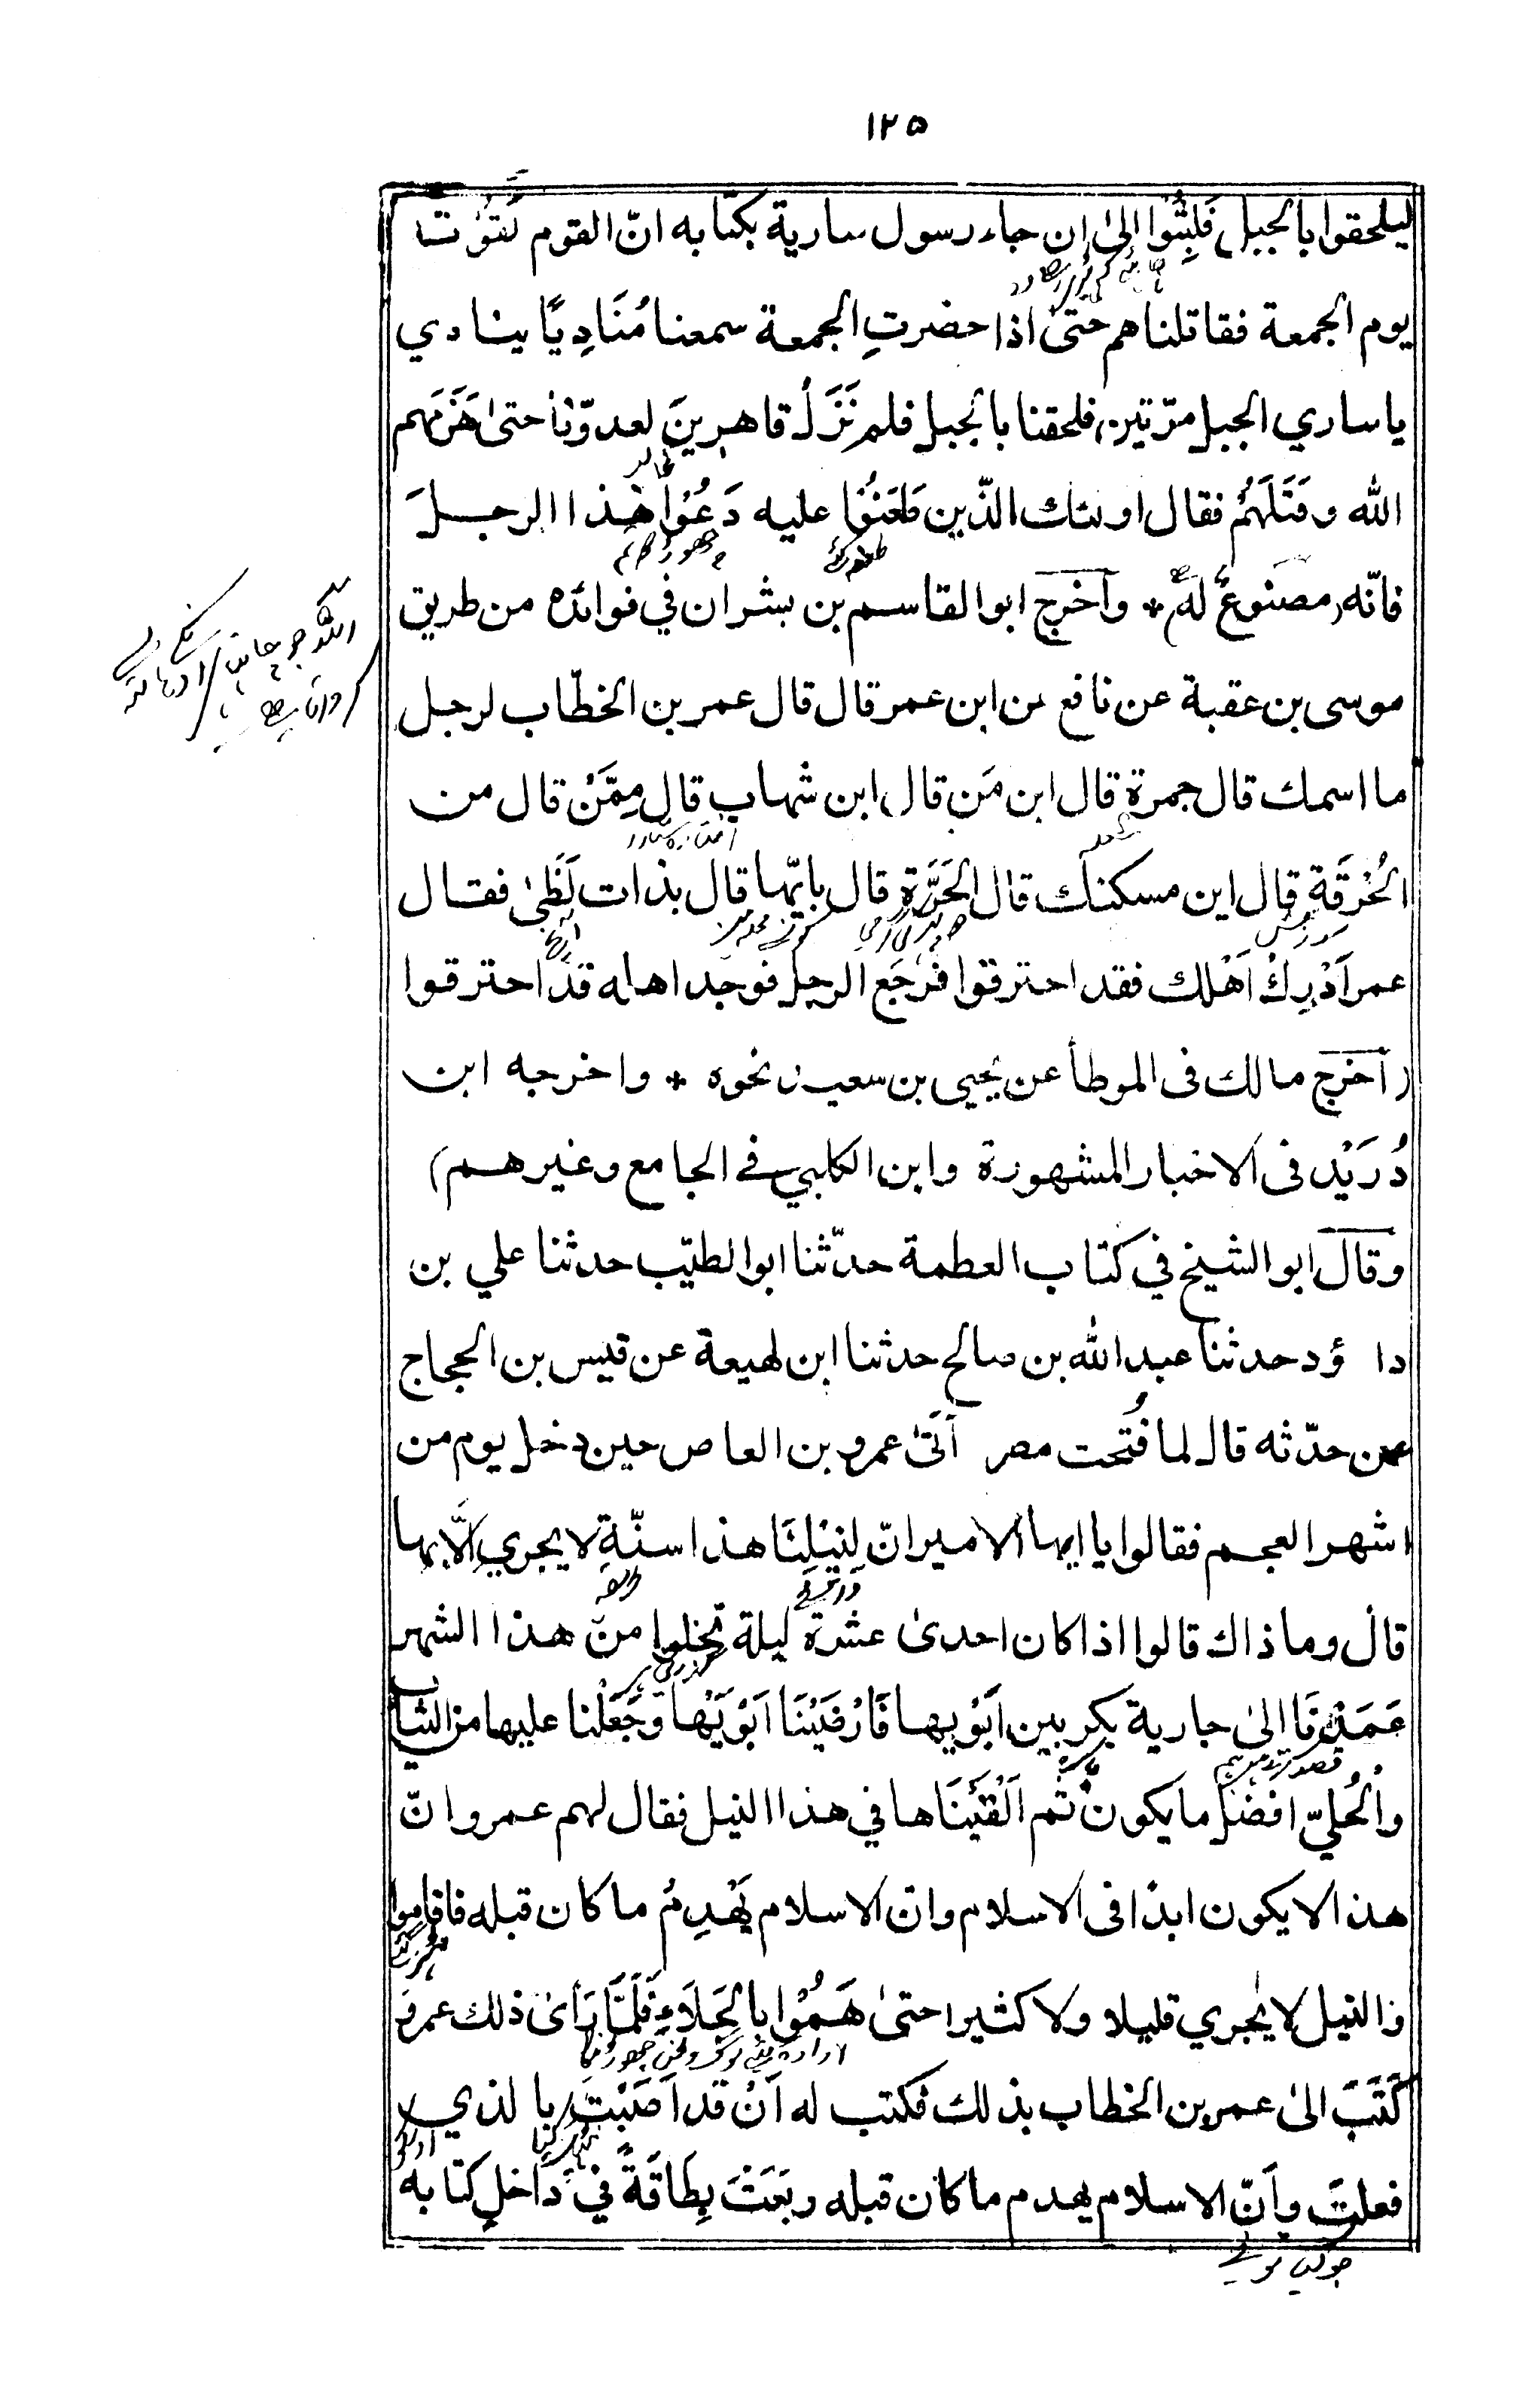 ١٢٥
ليلحقوا بالجبل فَلبِثُوا الىٰ ان جاء رسول سارية بكتابه انّ القوم لَقُونا
يوم الجمعة فقاتلناهم حتىٰ اذا حضرتِ الجمعة سمعنا مُنَادِيًا ينادي
يا ساري الجبل مرّتين فلحقنا بالجبل فلم نَزَلْ قاهرينَ لعدوّنا حتىٰ هَزَمَهم
الله وقَتَلَهُم فقال اولئك الذّين طَعَنُوا عليه دَعُوْا هٰذا الرجلَ
فانّه مصنوعٌ له * وآخرج ابو القاسم بن بشران في فوائده من طريق
موسى بن عقبة عن نافع عن ابن عمر قال قال عمر بن الخطّاب لرجل
ما اسمك قال جمرة قال ابن مَن قال ابن شهاب قال مِمَّنْ قال من
الحُرْقَةِ قال اين مسكنك قال الحَرَّةِ قال بايّها قال بذات لَظَىٰ فقال
عمر اَدْرِكْ اَهْلك فقد احترقوا فَرَجَع الرجل فوجد اهله قد احترقوا
(أخرج مالك فى الموطأ عن يحيى بن سعيد نحوه * واخرجه ابن
دُرَيْد فى الاخبار المشهورة وابن الكلبي في الجامع وغيرهم)
وقال ابو الشيخ في كتاب العظمة حدّثنا ابو الطيّب حدثنا علي بن
داؤد حدثنا عبد الله بن صالح حدثنا ابن لهيعة عن قيس بن الحجاج
عمن حدّثه قال لما فُتحت مصر آتىٰ عمرو بن العاص حين دخل يوم من
اشهر العجم فقالوا يا ايها الامير انّ لِنِيْلِنَا هذا سنّةٍ لا يجري الّا بها
قال وما ذاك قالوا اذا كان احدىٰ عشرة ليلة تخلوا من هذا الشهر
عَمَدْنَا الىٰ جارية بكر بين اَبَوْيها فَاَرْضَيْنَا اَبَوْيَهْا وَجَعَلْنا عليها من الثياب
والحُليّ افضل ما يكون ثم اَلْقَيْنَاها في هذا النيل فقال لهم عمرو انّ
هذا لا يكون ابدًا فى الاسلام وان الاسلام يَهْدِمُ ما كان قبله فاقاموا
والنيل لا يجري قليلا ولا كثيرا حتىٰ هَمُوْا بالجَلاَءِ فَلَمَّا رَأىٰ ذلك عمرو
كَتَبَ الىٰ عمر بن الخطاب بذلك فكتب له اَنْ قد اَصَبْتَ بالذي
فعلتَ وانّ الاسلام يهدم ما كان قبله وبَعَثَ بِطَاقَةً في داخلِ كتابه